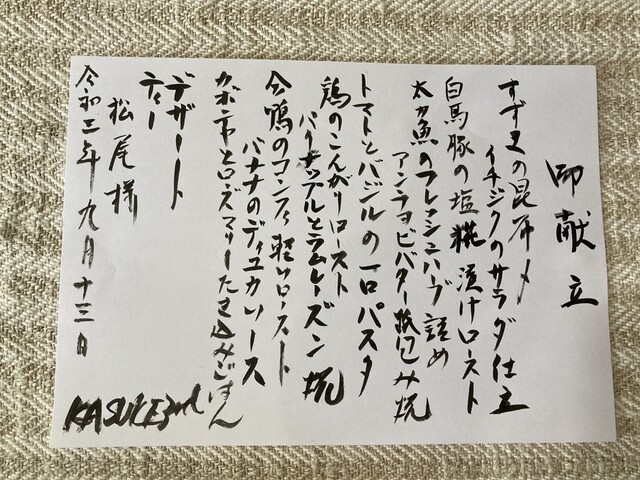 御献立
すずきの昆布〆
イチジクのサラダ仕立
白馬豚の塩糀漬けロースト
太刀魚のフレッシュハーブ詰め
アンチョビバター紙包み焼
トマトとバジルの一口パスタ
鶏のこんがりロースト
パイナップルとラムレーズン焼
合鴨のコンフィ軽いロースト
バナナのデュカソース
カボチャとローズマリーたき込みごはん
デザート
ティー
松尾様
令和三年九月十三日
KASUKE